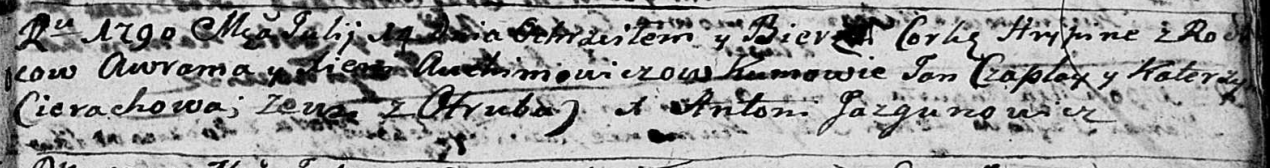 Ru 1790 Mca Julij 14 Dnia Ochrzciłem y Bierz Corkę Hrypine z Rod
cow Awrama y Auchimowiczow Kumowie Jan Czaplay y Katerzy
Cierachowa; z Otruba) A Antoni Jazgunowicz